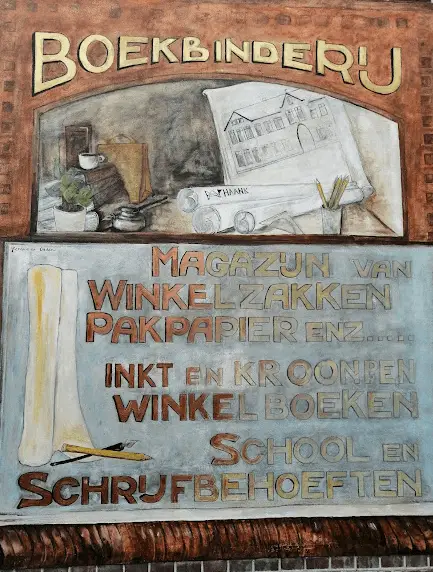 BOEKBINDERIJ
MAGAZIJN VAN
WINKELZAKKEN
PAKPAPIER ENZ.....
INKT EN KROONPEN
WINKELBOEKEN
SCHOOL EN
SCHRIJFBEHOEFTEN